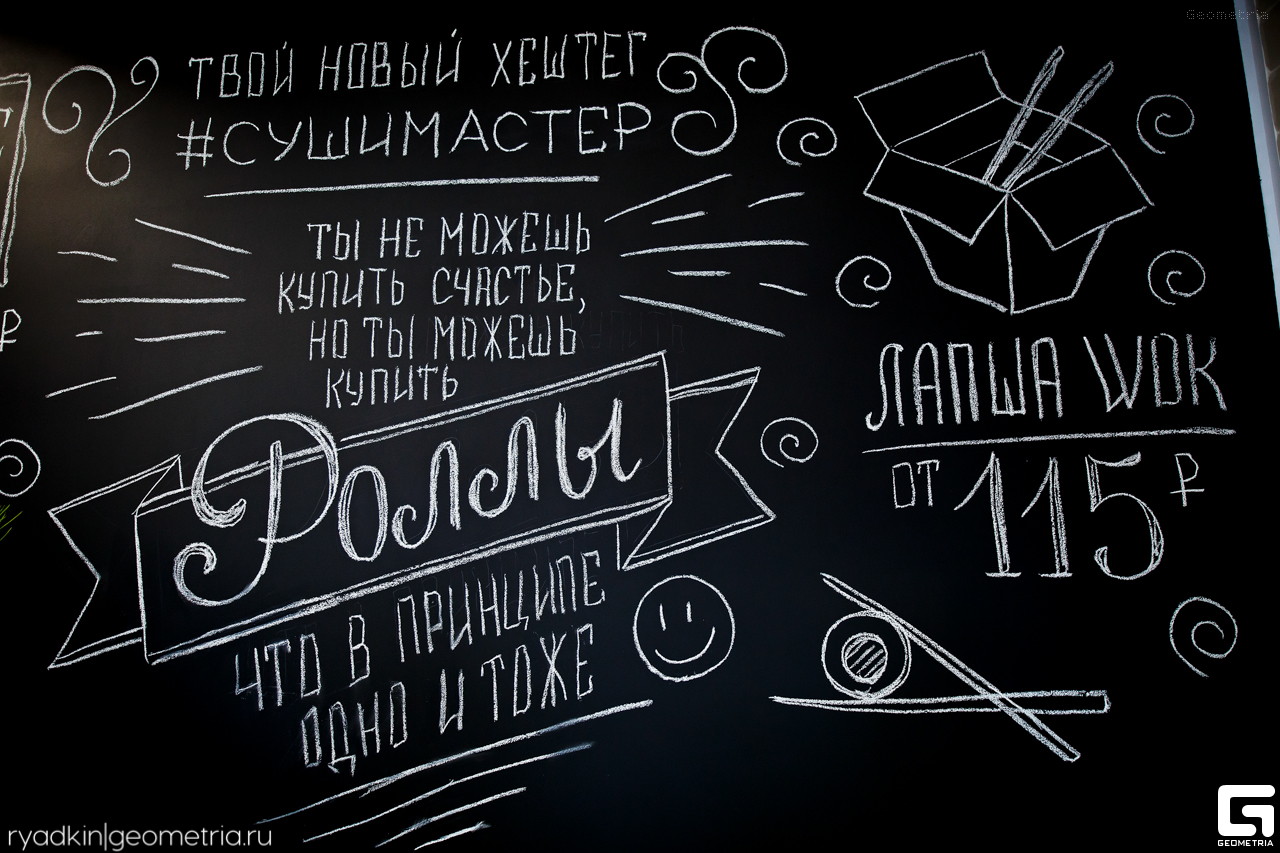 Geometria
ТВОЙ НОВЫЙ ХЕШТЕГ
#СУШИМАСТЕР
ТЫ НЕ МОЖЕШЬ
КУПИТЬ СЧАСТЬЕ,
НО ТЫ МОЖЕШЬ
КУПИТЬ
Роллы
ЧТО В ПРИНЦИПЕ
ОДНО И ТОЖЕ
ЛАПША WOK
ОТ 115 ₽
₽
ryadkin|geometria.ru
GEOMETRIA